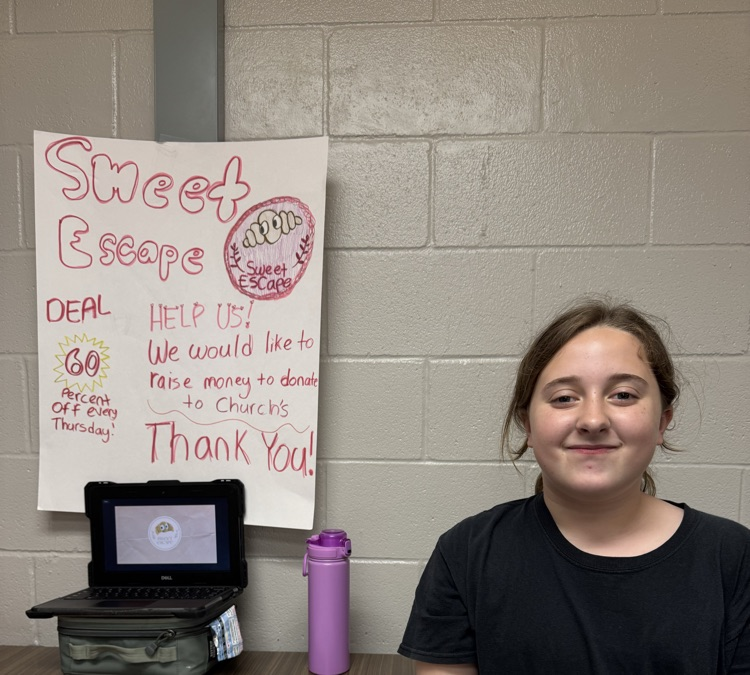 Sweet
Escape
Sweet
Escape
DEAL
60
Percent
Off every
Thursday!
HELP US!
We would like to
raise money to donate
to Church's
Thank You!
DELL